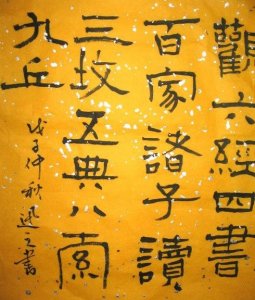 觀六經四書
百家諸子讀
三坟五典八索
九丘
戊子仲秋